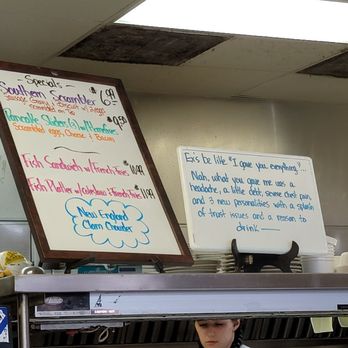 Specials
Southern Scrambler $6.99
Sausage Gravy & Biscuit w/ 2 eggs
scrambled on top
Pancake Sliders (2) w/ Homefries $9.50
Scrambled eggs, Cheese & Bacon
Fish Sandwich w/ French Fries $10.99
Fish Platter w/ Coleslaw & French Fries $11.99
New England
Clam Chowder
Ex's be like "I gave you everything"...
Nah, what you gave me was a
headache, a little debt, severe chest pain,
and 2 new personalities with a splash
of trust issues and a reason to
drink